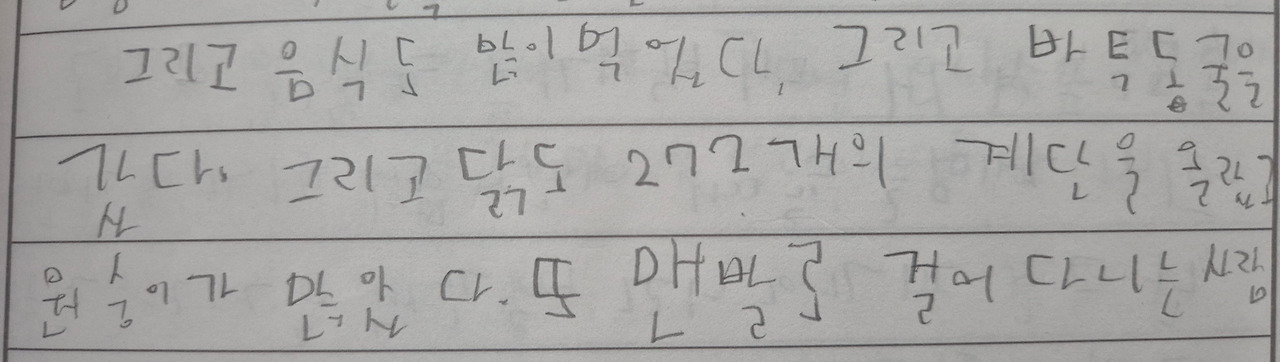 그리고 음식도 많이 먹었다. 그리고 동굴을
갔다. 그리고 닭도 272개의 계단을
원숭이가 많았다. 또 맨발로 걸어 다니는 사람